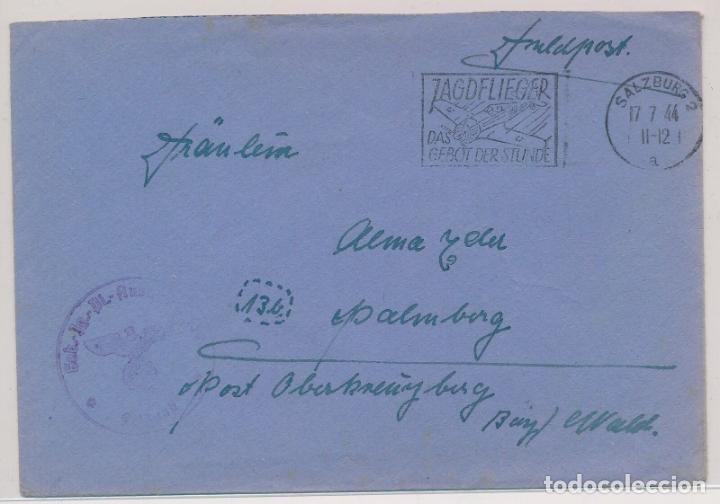 Feldpost.
JAGDFLIEGER
DAS
GEBOT DER STUNDE
SALZBURG 2
17 7 44
11-12
a
Fräulein
Alma
13b
Palmberg
Post Oberkreuzberg
Bay. Wald.
todocoleccion